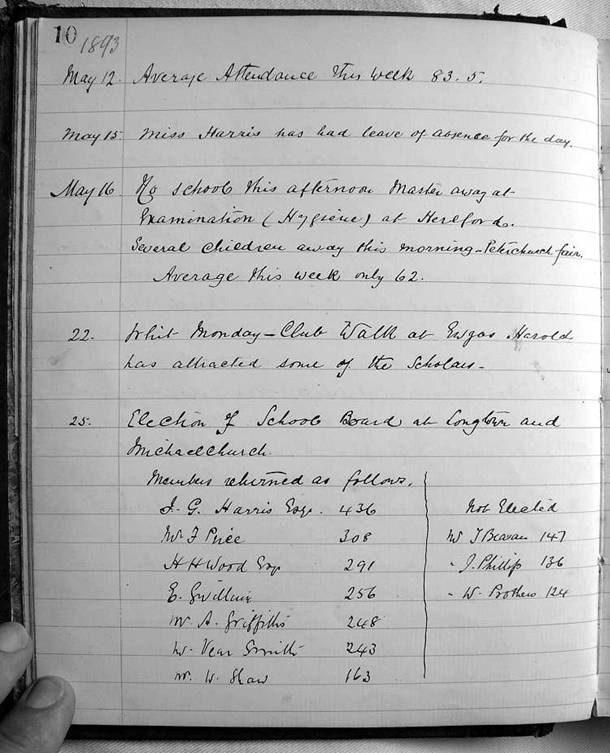 10
1893
May 12. Average Attendance this week 83.5.
May 15. Miss Harris has had leave of absence for the day.
May 16 No school this afternoon Master away at
Examination (Hygiene) at Hereford.
Several children away this morning - Peterchurch fair.
Average this week only 62.
22. Whit Monday - Club Walk at Ewyas Harold
has attracted some of the Scholars -
25. Election of School Board at Longtown and
Michaelchurch.
Members returned as follows.
J. G. Harris Esqr. 436
Mr F Price 308
H H Wood Esq 291
E. Gwilliam 256
Mr A. Griffiths 248
W. Vear Smith 243
Mr W. Shaw 163
Not Elected
Mr J Beavan 147
" J. Phillips 136
" W. Prothero 124